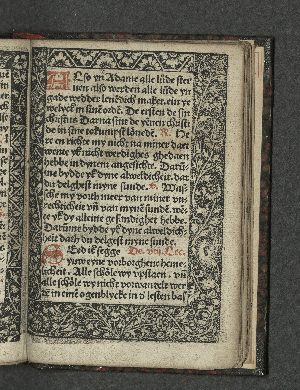 Also yn Adame alle lüde ster
uen also werden alle lüde yn
gade wedder leuēdich maket. ein ye
welyck in sine ordē. De ersten de sin
christus Darna sint de yenen christi
de in sine tokumpst lōuedē. R. He
re en richte my nicht na miner daet
wente yk nicht werdighes ghedaen
hebbe in dynem angesichte. Darū-
me bydde yk dyne alweldicheit. dat
du delghest myne sunde. V. Was-
sche my vorth meer van miner vn-
rechticheit vn̄ van mynē sundē. wē-
te yk dy alleine gesundighet hebbe.
Darūme bydde yk dyne alweldich-
eit dath du delgest myne sunde.
Seed ik segge De. vıı. Lec.
yuw eyne vorborghene heme-
licheit. Alle schōle wy vpstaen. vn̄
alle schōle wy nicht vorwandelt wer
dē in eme ogenblycke in d' lesten bas-